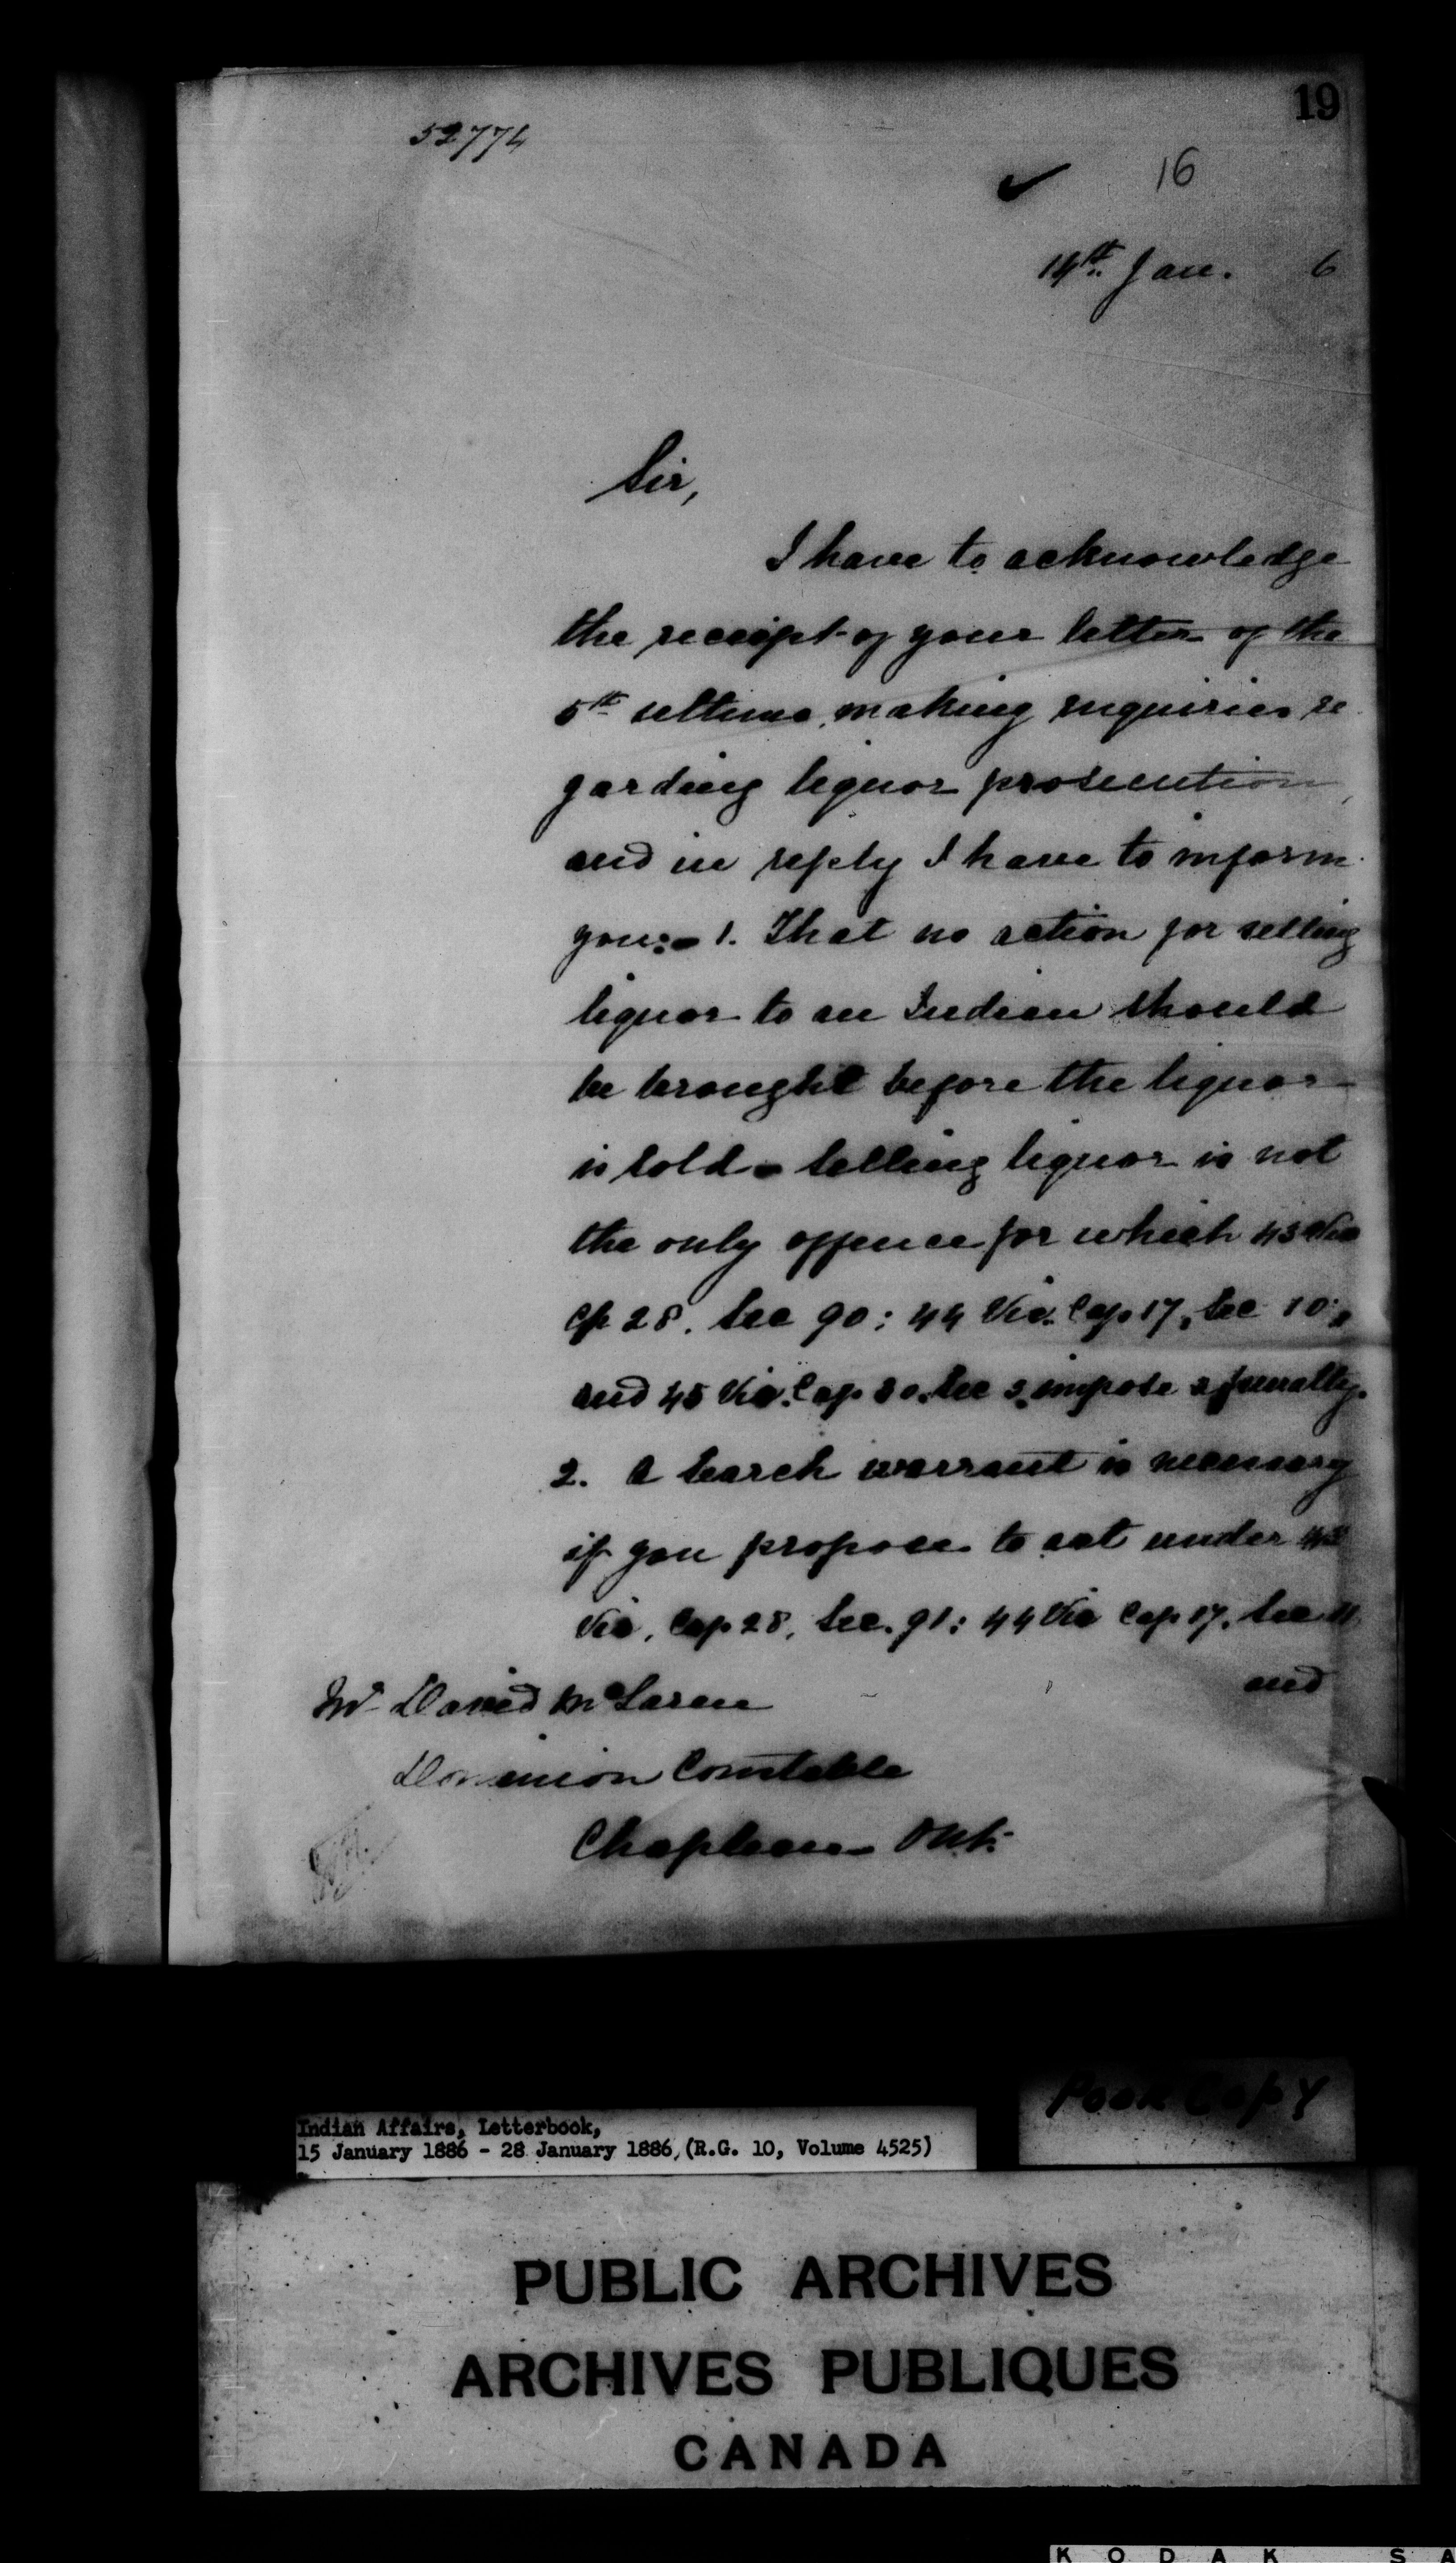 19
52774
16
14th Jan. 6
Sir,
I have to acknowledge
the receipt of your letter of the
5th ultimo, making enquiries re
garding liquor prosecution,
and in reply I have to inform
you:- 1. That no action for selling
liquor to an Indian should
be brought before the liquor
is sold - selling liquor is not
the only offence for which 43 Vic
Cp 28. Sec 90: 44 Vic. Cap 17, Sec 10;
and 45 Vic. Cap 30. Sec 3. impose a penalty.
2. A search warrant is necessary
if you propose to act under 43
Vic, Cap 28, Sec. 91: 44 Vic Cap 17, Sec 11
and
Mr David McLaren
Dominion Constable
Chapleau Ont.
Poor Copy
Indian Affairs, Letterbook,
15 January 1886 - 28 January 1886, (R.G. 10, Volume 4525)
PUBLIC ARCHIVES
ARCHIVES PUBLIQUES
CANADA
KODAK SA